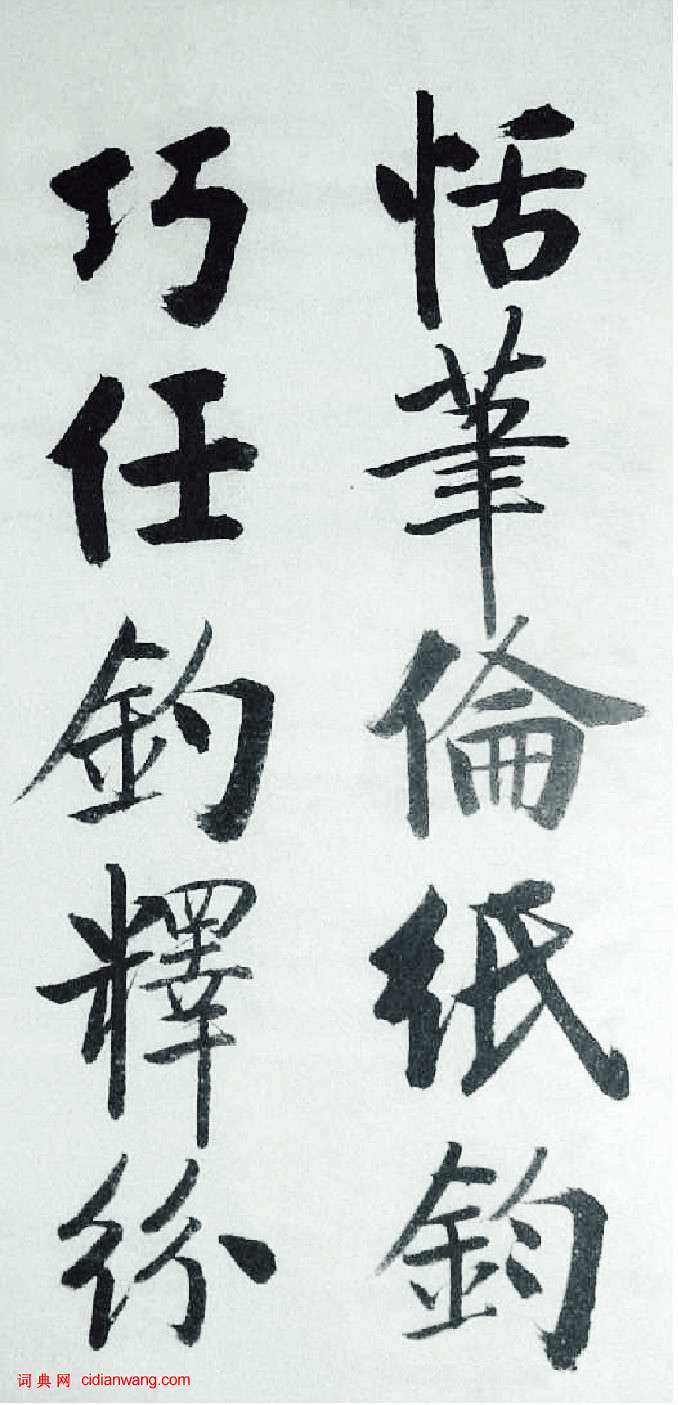 恬筆倫紙鈞
巧任釣釋紛
词典网 cidianwang.com